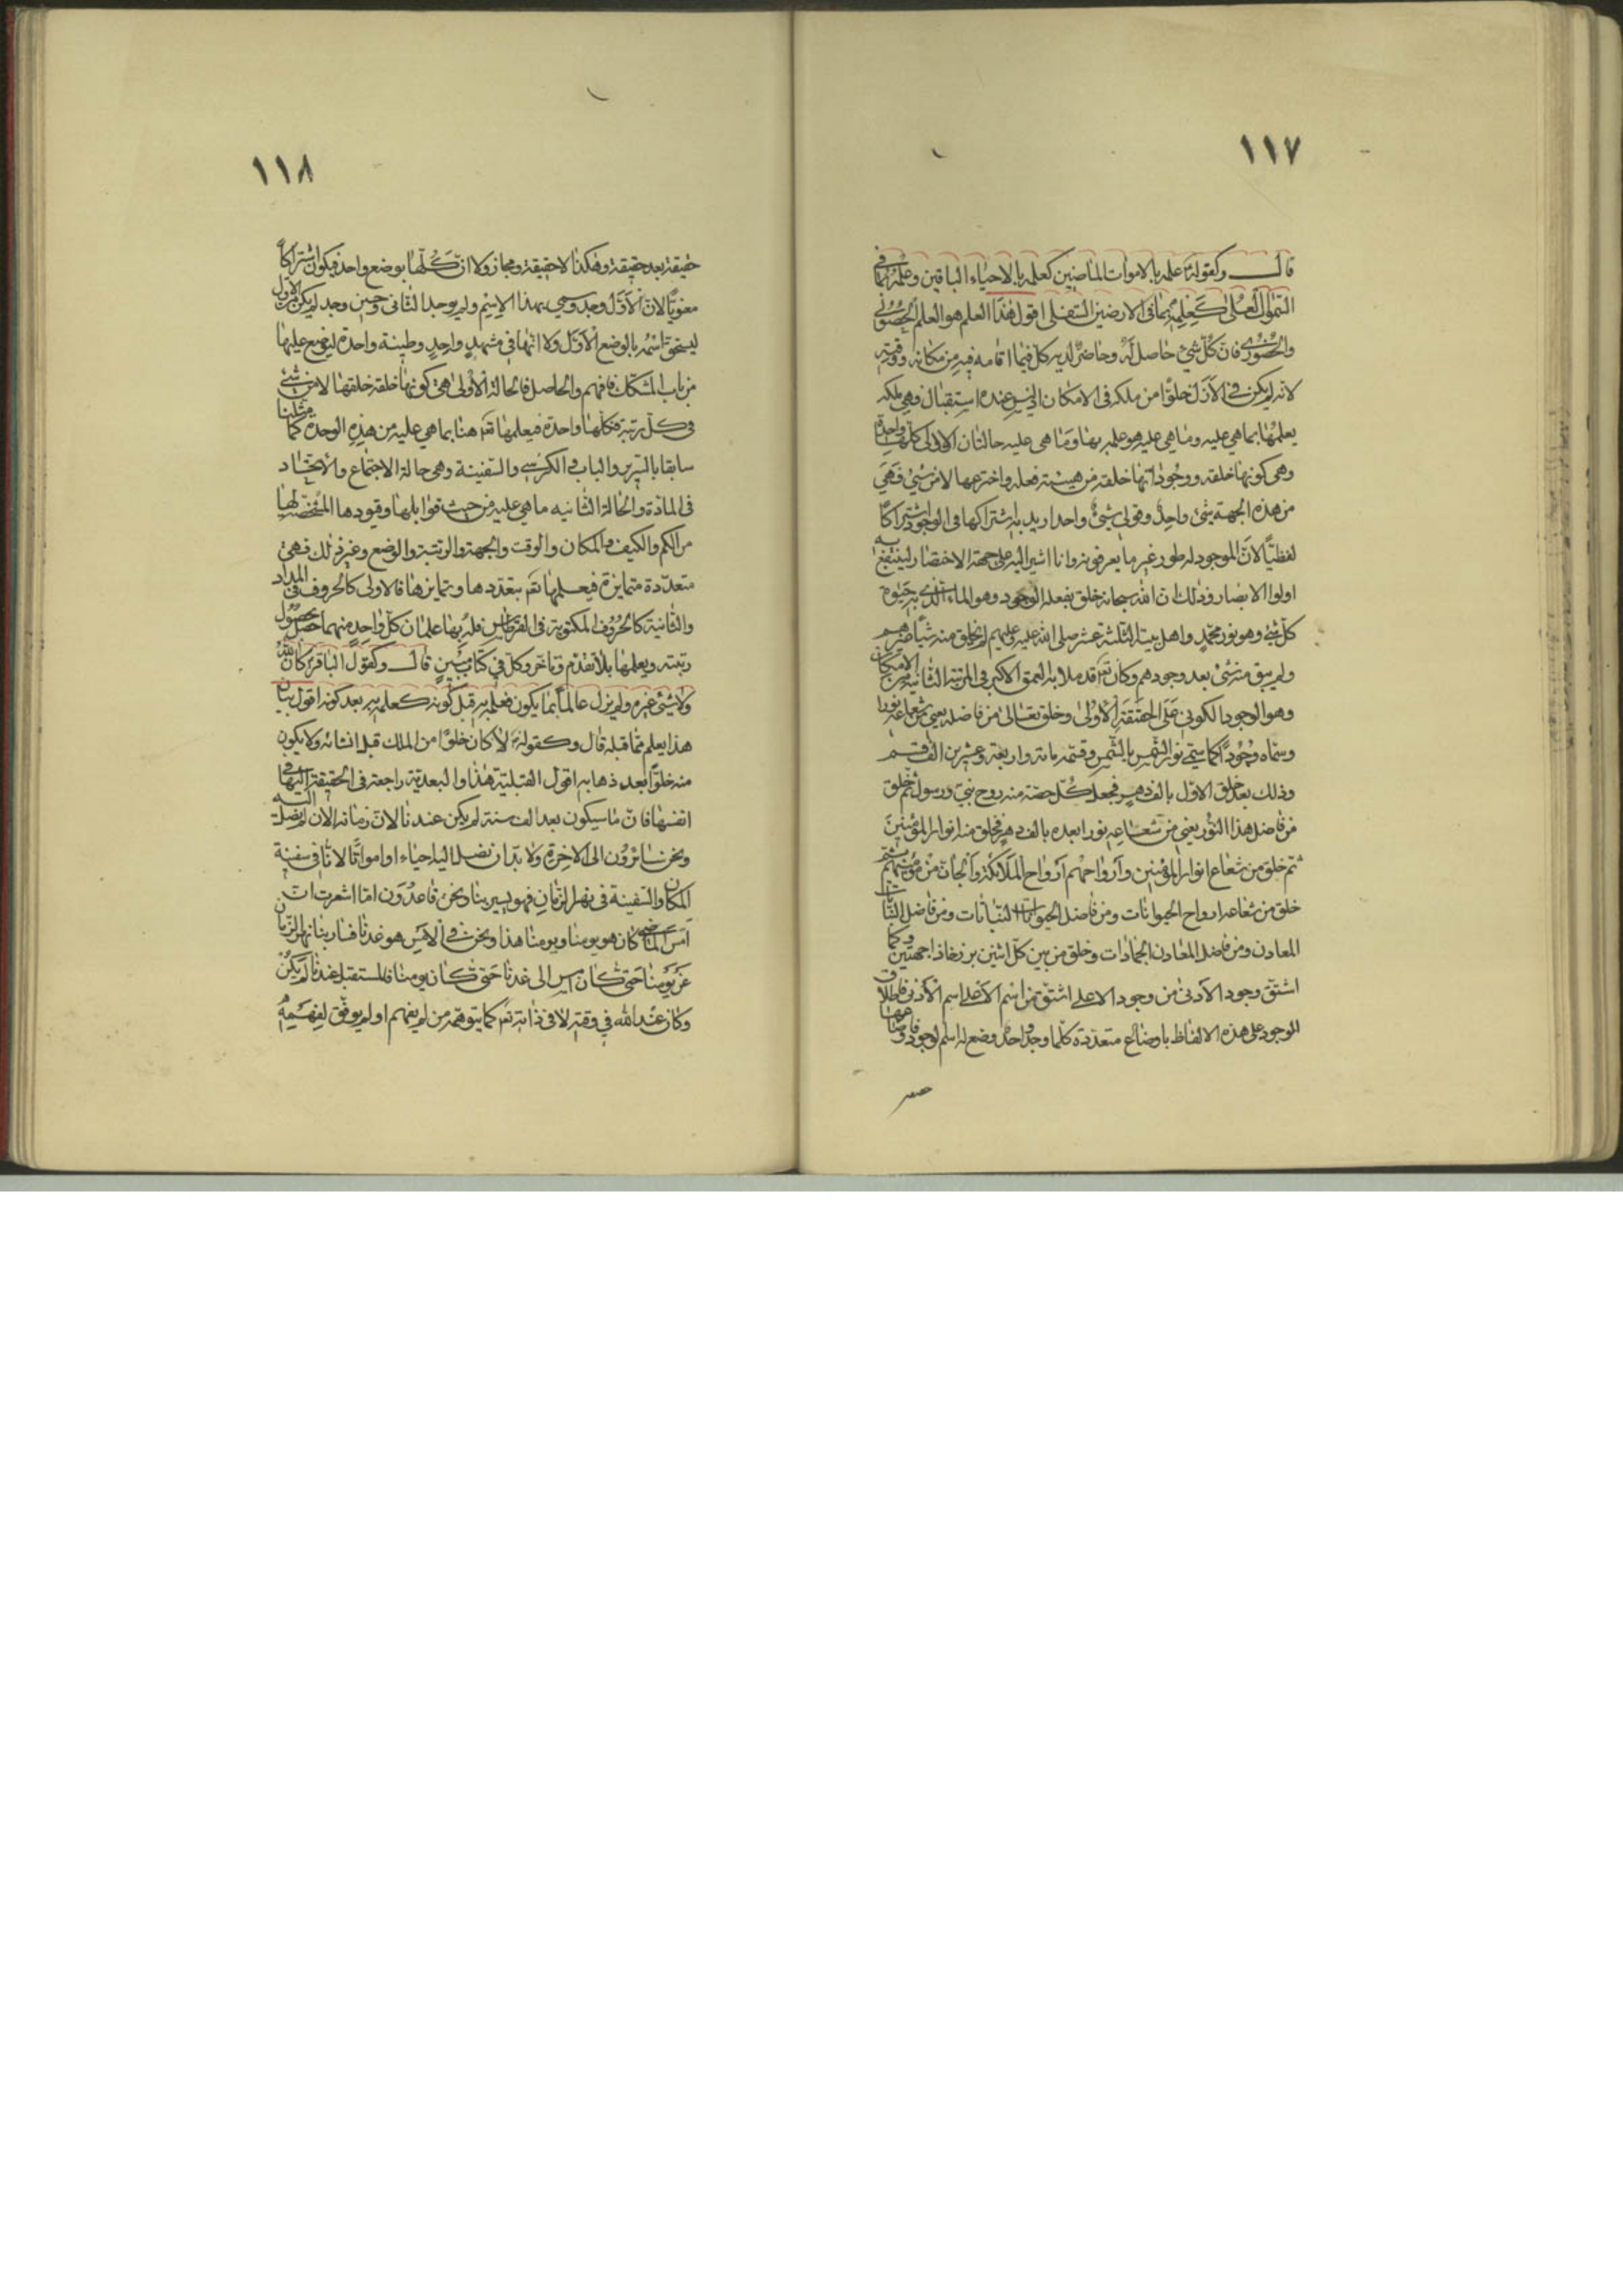 ١١٧
قال وكقوله ع علمه بالاموات الماضين كعلمه بالاحياء الباقين وعلمه بما في
السموات العلى كعلمه بما في الارضين السفلى اقول هذا العلم هو العلم الحصولي
والحضوري فان كل شئ حاصل له وحاضر لديه كل فيما اقامه فيه من مكانه ووقته
لانه لم يكن في الازل خلوا من ملكه في الامكان اذ ليس عنده استقبال فهي ملكه
يعلمها بما هي عليه وما هي عليه هو علمه بها وما هي عليه حالتان الاولى كلها واحدة
وهي كونها خلقه ووجوداتها خلقه من هيئة فعله واخترعها لا من شئ فهي
من هذه الجهة شئ واحد وقولي شئ واحد اريد به اشتراكها في الوجود اشتراكا
لفظيا لان الموجود له طور غير ما يعرفونه وانا اشير اليه على جهة الاختصار لينتفع به
اولوا الابصار وذلك ان الله سبحانه خلق بفعله الوجود وهو الماء الذي به حيوة
كل شئ وهو نور محمد واهل بيته الثلثة عشر صلى الله عليه وعليهم لم يخلق منه شيئا غيرهم
ولم يبق منه شئ بعد وجودهم وكان تع قد ملا به العمق الاكبر في المرتبة الثانية من الامكان
وهو الوجود الكوني على الحقيقة الاولى وخلق تعالى من فاضله يعني من شعاعه نورا
وسماه وجودا كما سمي نور الشمس بالشمس وقسمه مائة واربعة وعشرين الف قسم
وذلك بعد خلق الاول بالف دهر فجعل كل حصة منه روح نبي ورسول ثم خلق
من فاضل هذا النور يعني من شعاعه نورا بعده بالف دهر فخلق منه انوار المؤمنين
ثم خلق من شعاع انوار المؤمنين وارواحهم ارواح الملائكة والجان من مؤمنيهم ثم
خلق من شعاعه ارواح الحيوانات ومن فاضل الحيوانات النباتات ومن فاضل النباتات
المعادن ومن فاضل المعادن الجمادات وخلق من بين كل اثنين برزخا ذا جهتين وكما
اشتق وجود الادنى من وجود الاعلى اشتق من اسم الاعلى اسم الادنى فاطلاق
الوجود على هذه الالفاظ باوضاع متعددة كلما وجد واحد وضع له اسم الوجود
١١٨
حقيقة بعد حقيقة وهكذا لا حقيقة ومجاز ولا ان كلها بوضع واحد فيكون اشتراكا
معنويا لان الاول وجد وسمي بهذا الاسم ولم يوجد الثاني وحين وجد لم يكن من الاول
ليستحق اسمه بالوضع الاول ولا انهما في مشهد واحد وطينة واحدة ليوضع عليها
من باب المشكك فافهم والحاصل فالحالة الاولى هي كونها خلقه خلقها لا من شئ
في كل رتبة فكلها واحدة فيعلمها تع هنا بما هي عليه من هذه الوحدة كما مثلنا
سابقا بالسرير والباب والكرسي والسفينة وهي حالة الاجتماع والاتحاد
في المادة والحالة الثانيه ما هي عليه من حيث قوابلها وقيودها المشخصة لها
من الكم والكيف والمكان والوقت والجهة والرتبة والوضع وغير ذلك فهي
متعددة متمايزة فيعلمها تع بتعددها وبتمايزها فالاولى كالحروف في المداد
والثانية كالحروف المكتوبة في القرطاس فله بها علمان كل واحد منهما حصل بحصول
رتبته ويعلمها بلا تقدم وتاخر وكل في كتاب مبين قال وكقول الباقر ع كان الله
ولا شئ غيره ولم يزل عالما بما يكون فعلمه به قبل كونه كعلمه به بعد كونه اقول بيان
هذا يعلم مما قبله قال وكقوله ع لا كان خلوا من الملك قبل انشائه ولا يكون
منه خلوا بعد ذهابه اقول القبلية هذا والبعدية راجعة في الحقيقة اليها في
انفسها فان ما سيكون بعد الف سنة لم يكن عندنا لان زمانه الان لم نصل اليه
ونحن سائرون الى الاخرة ولا بد ان نصل اليه احياء او امواتا لانا في سفينة
المكان والسفينة في نهر الزمان فهو يسير بنا ونحن قاعدون اما اشعرت ان
امس الماضي كان هو يومنا ويومنا هذا ونحن في الامس هو غدنا فسار بنا نهر الزمان
عن يومنا حتى كان امس الى غدنا حتى كان يومنا فالمستقبل غدنا لم يكن
وكان عند الله في وقته لا في ذاته تع كما يتوهمه من لم يفهم او لم يوفق لفهمه